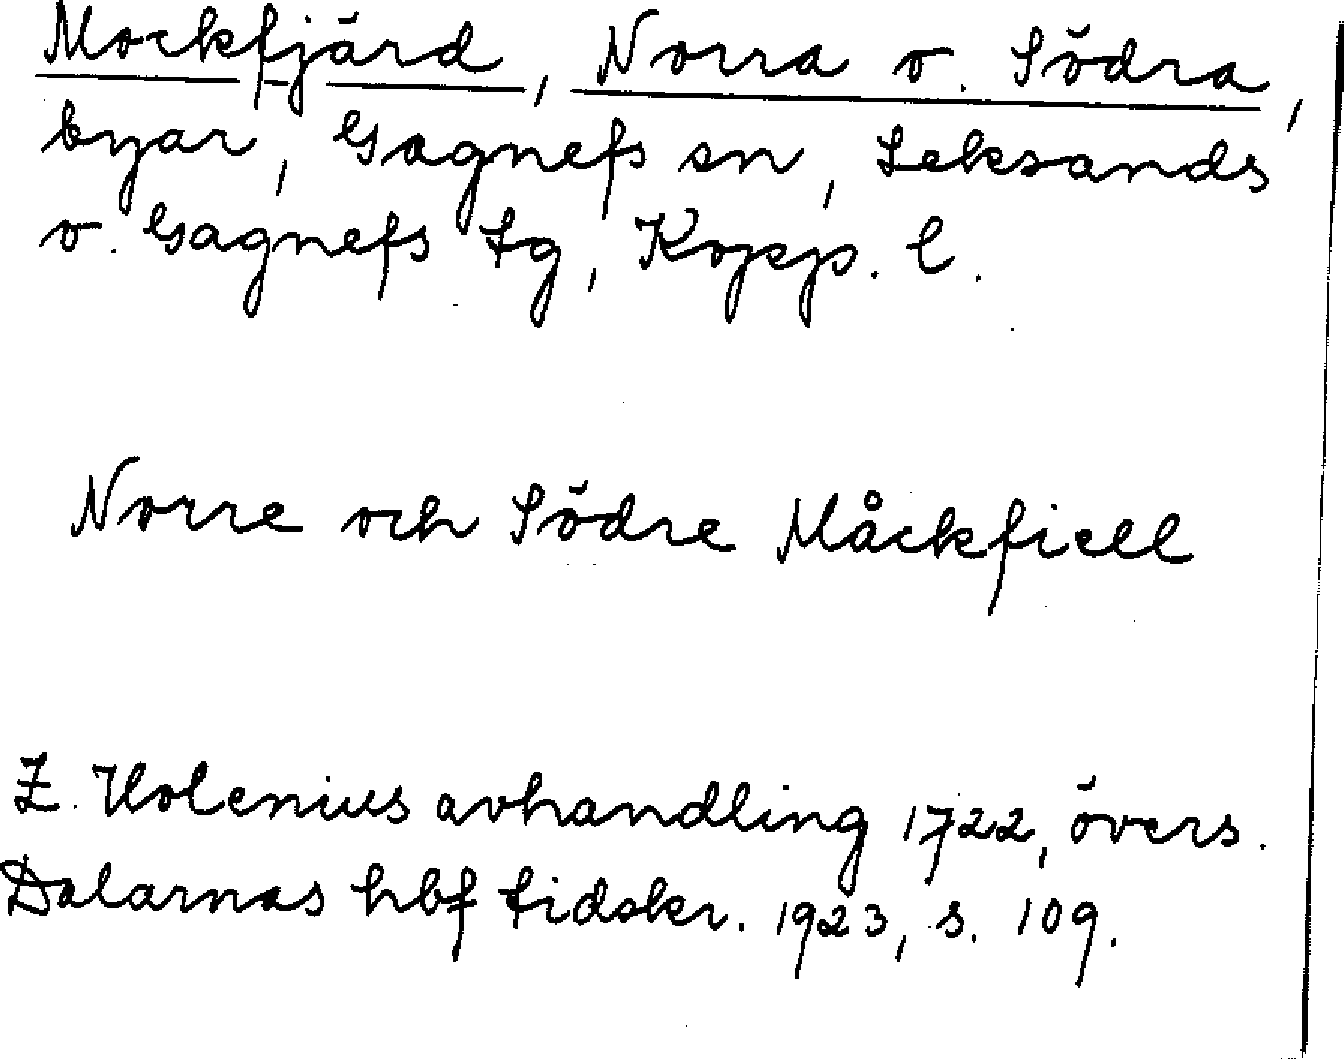 Mockfjärd, Norra o. Södra,
byar, Gagnefs sn, Leksands
o. Gagnefs tg, Kopp. l.
Norre och Södre Måckfiell
Z. Holenius avhandling 1722, övers.
Dalarnas hbf tidskr. 1923, s. 109.